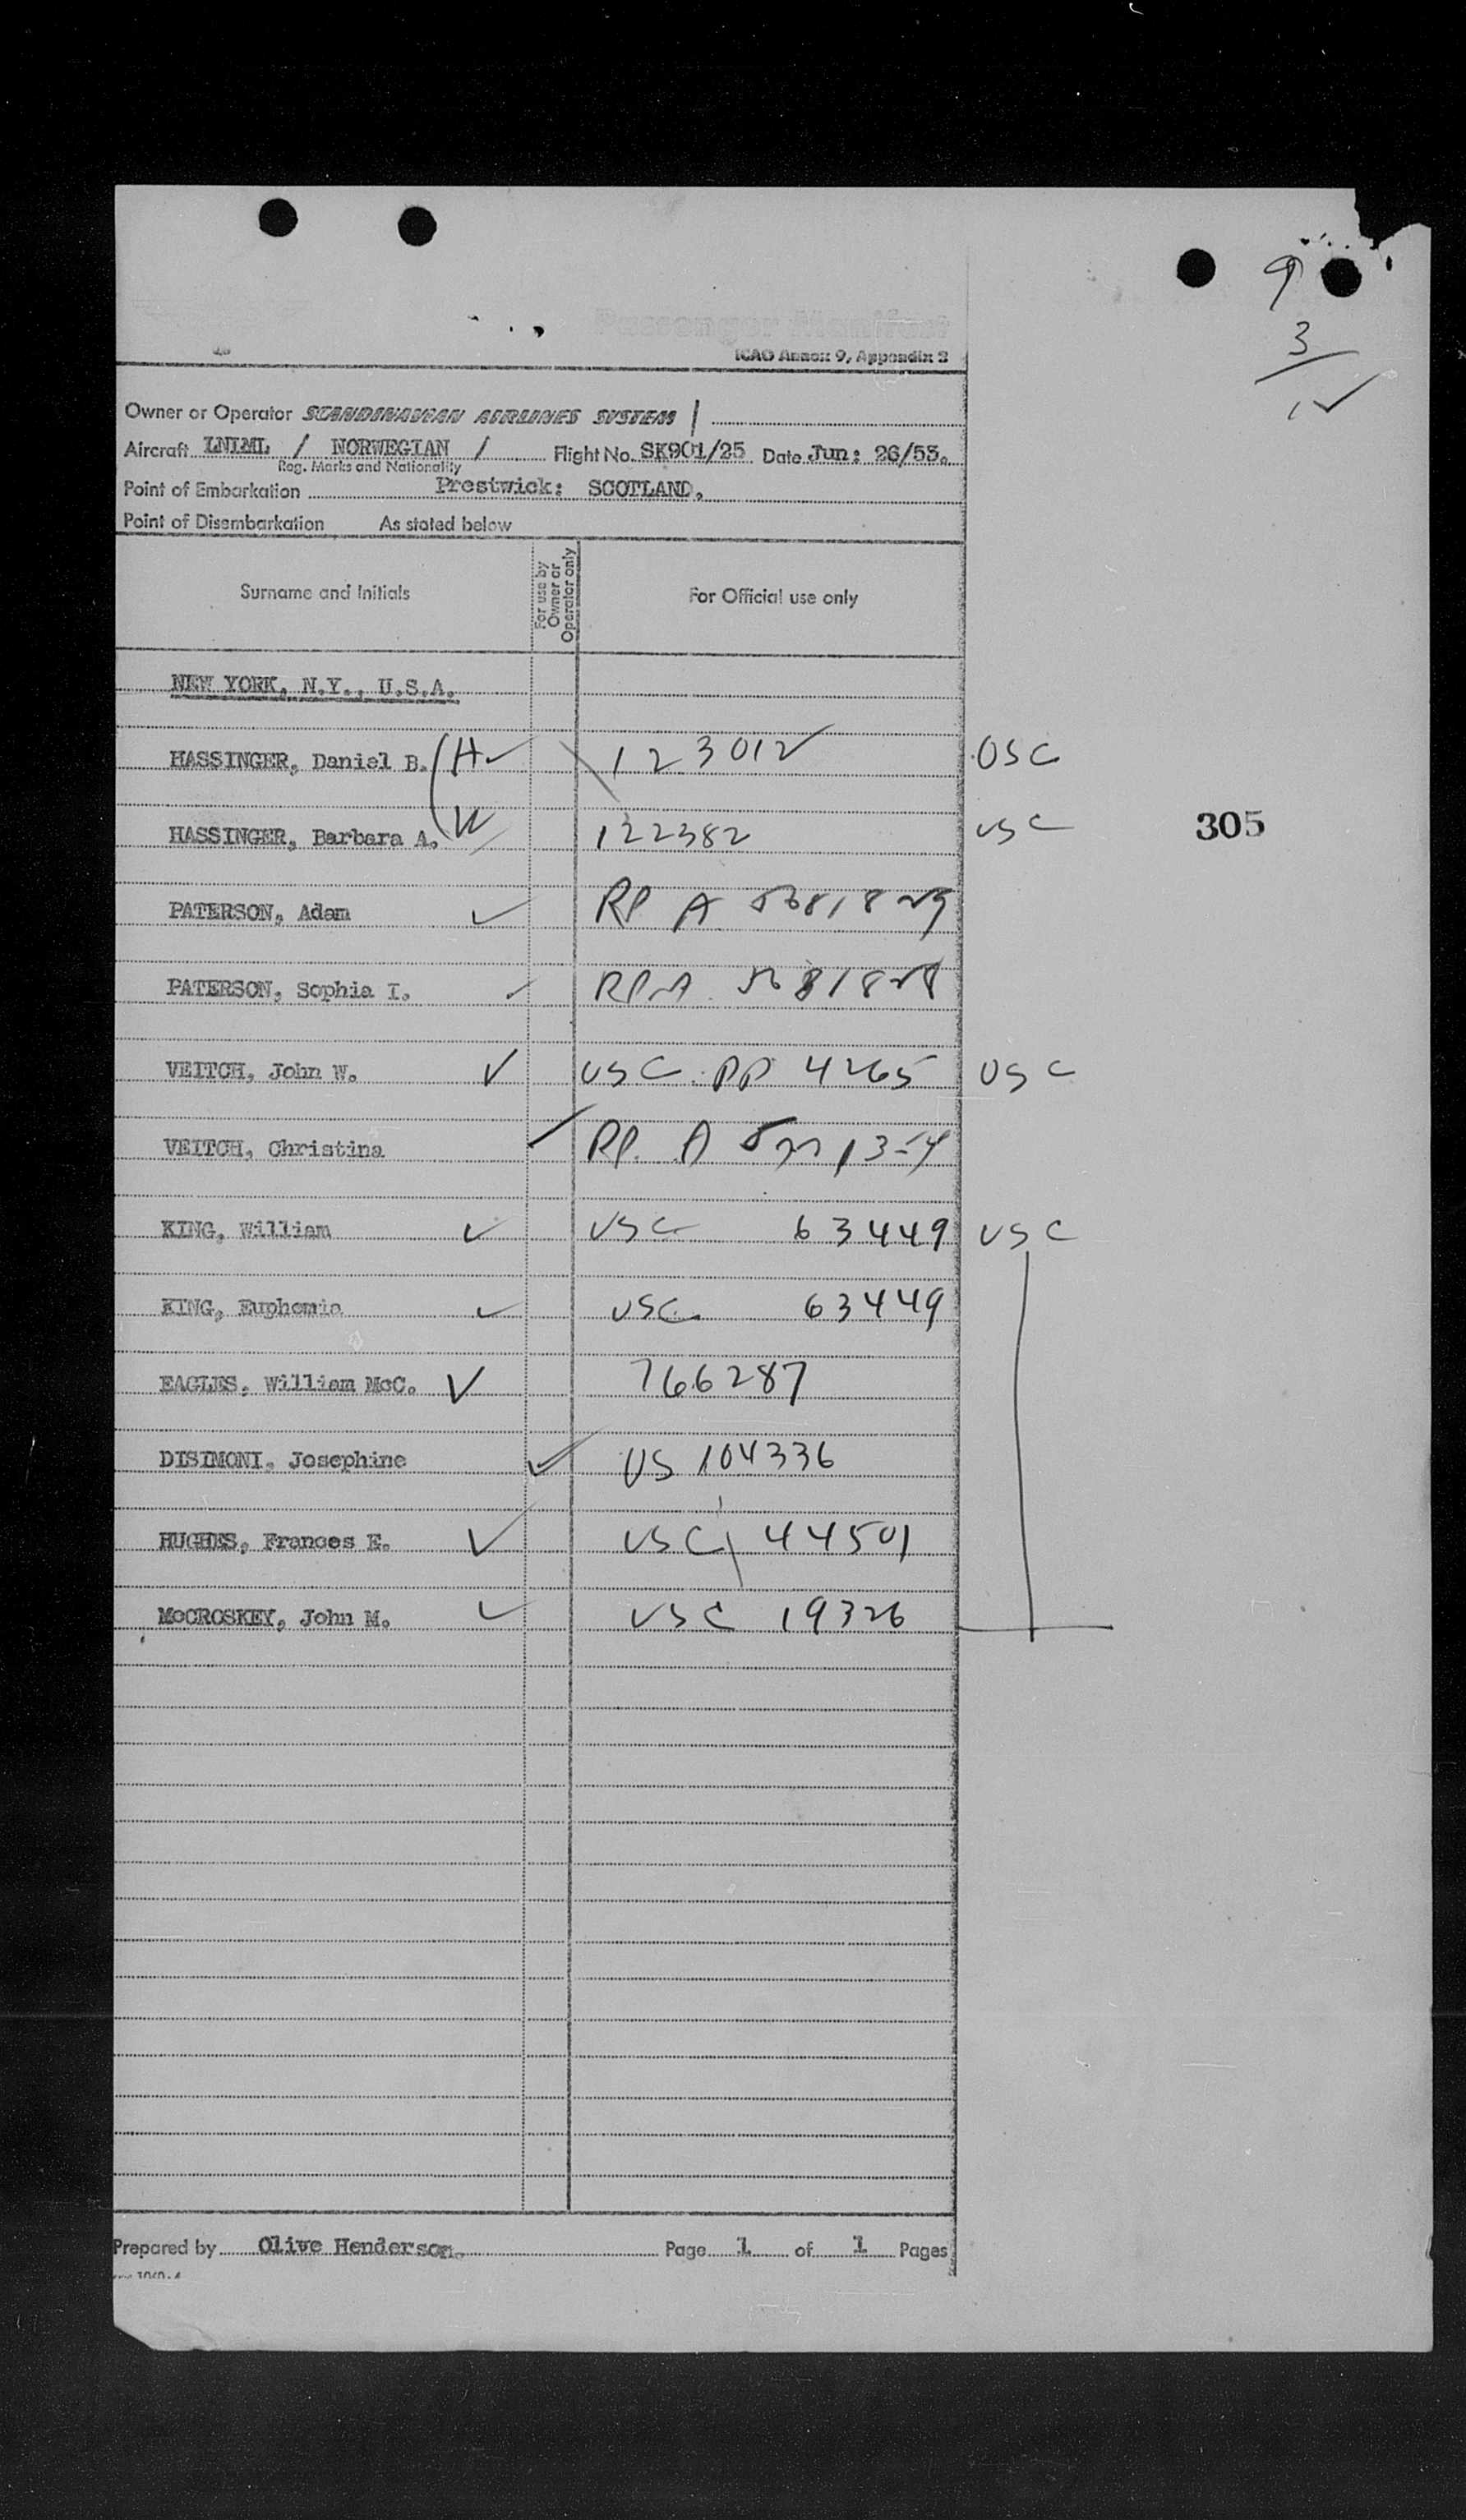 Passenger Manifest
ICAO Annex 9, Appendix 2
9
3
12
Owner or Operator SCANDINAVIAN AIRLINES SYSTEM
Aircraft LNIML / NORWEGIAN / Flight No. SK901/25 Date Jun: 26/53.
Reg. Marks and Nationality
Point of Embarkation Prestwick: SCOTLAND.
Point of Disembarkation As stated below
Surname and Initials For use by Owner or Operator only For Official use only
NEW YORK, N.Y., U.S.A.
HASSINGER, Daniel B. (H 123012 USC
HASSINGER, Barbara A. W 122382 USC
305
PATERSON, Adam RP A 5681829
PATERSON, Sophia I. RP A 5681828
VEITCH, John W. USC PP 4265 USC
VEITCH, Christina RP A
KING, William USC 63449 USC
KING, Euphemia USC 63449
EAGLES, William McC. 766287
DISIMONI, Josephine US 104336
HUGHES, Frances E. USC 44501
McCROSKEY, John M. USC 19326
Prepared by Olive Henderson. Page 1 of 1 Pages